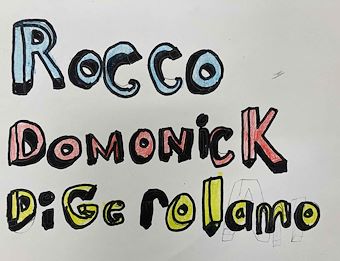 Rocco
DOMONiCK
DiGerolamo